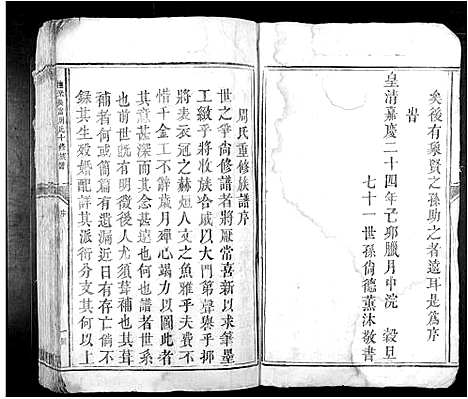 矣後有聚賢之孫助之者遠耳是為序
旹
皇清嘉慶二十四年己卯臘月中浣 穀旦
七十一世孫尚德薰沐敬書
周氏重修族譜序
世之華尚修譜者將厭常喜新以求筆墨
工緻乎將收族合戚以大門第聲舉乎抑
將表衣冠之赫烜人文之魚雅乎夫費不
惜千金工不辭歲月殫心竭力以從事於
其意念亦甚遠也何也譜者世系
前世既有明徵後人尤須葺補也其葺
補者何或簡編日久未有存亡倘不
錄其生歿婚配詳其派衍分支其何以上
序